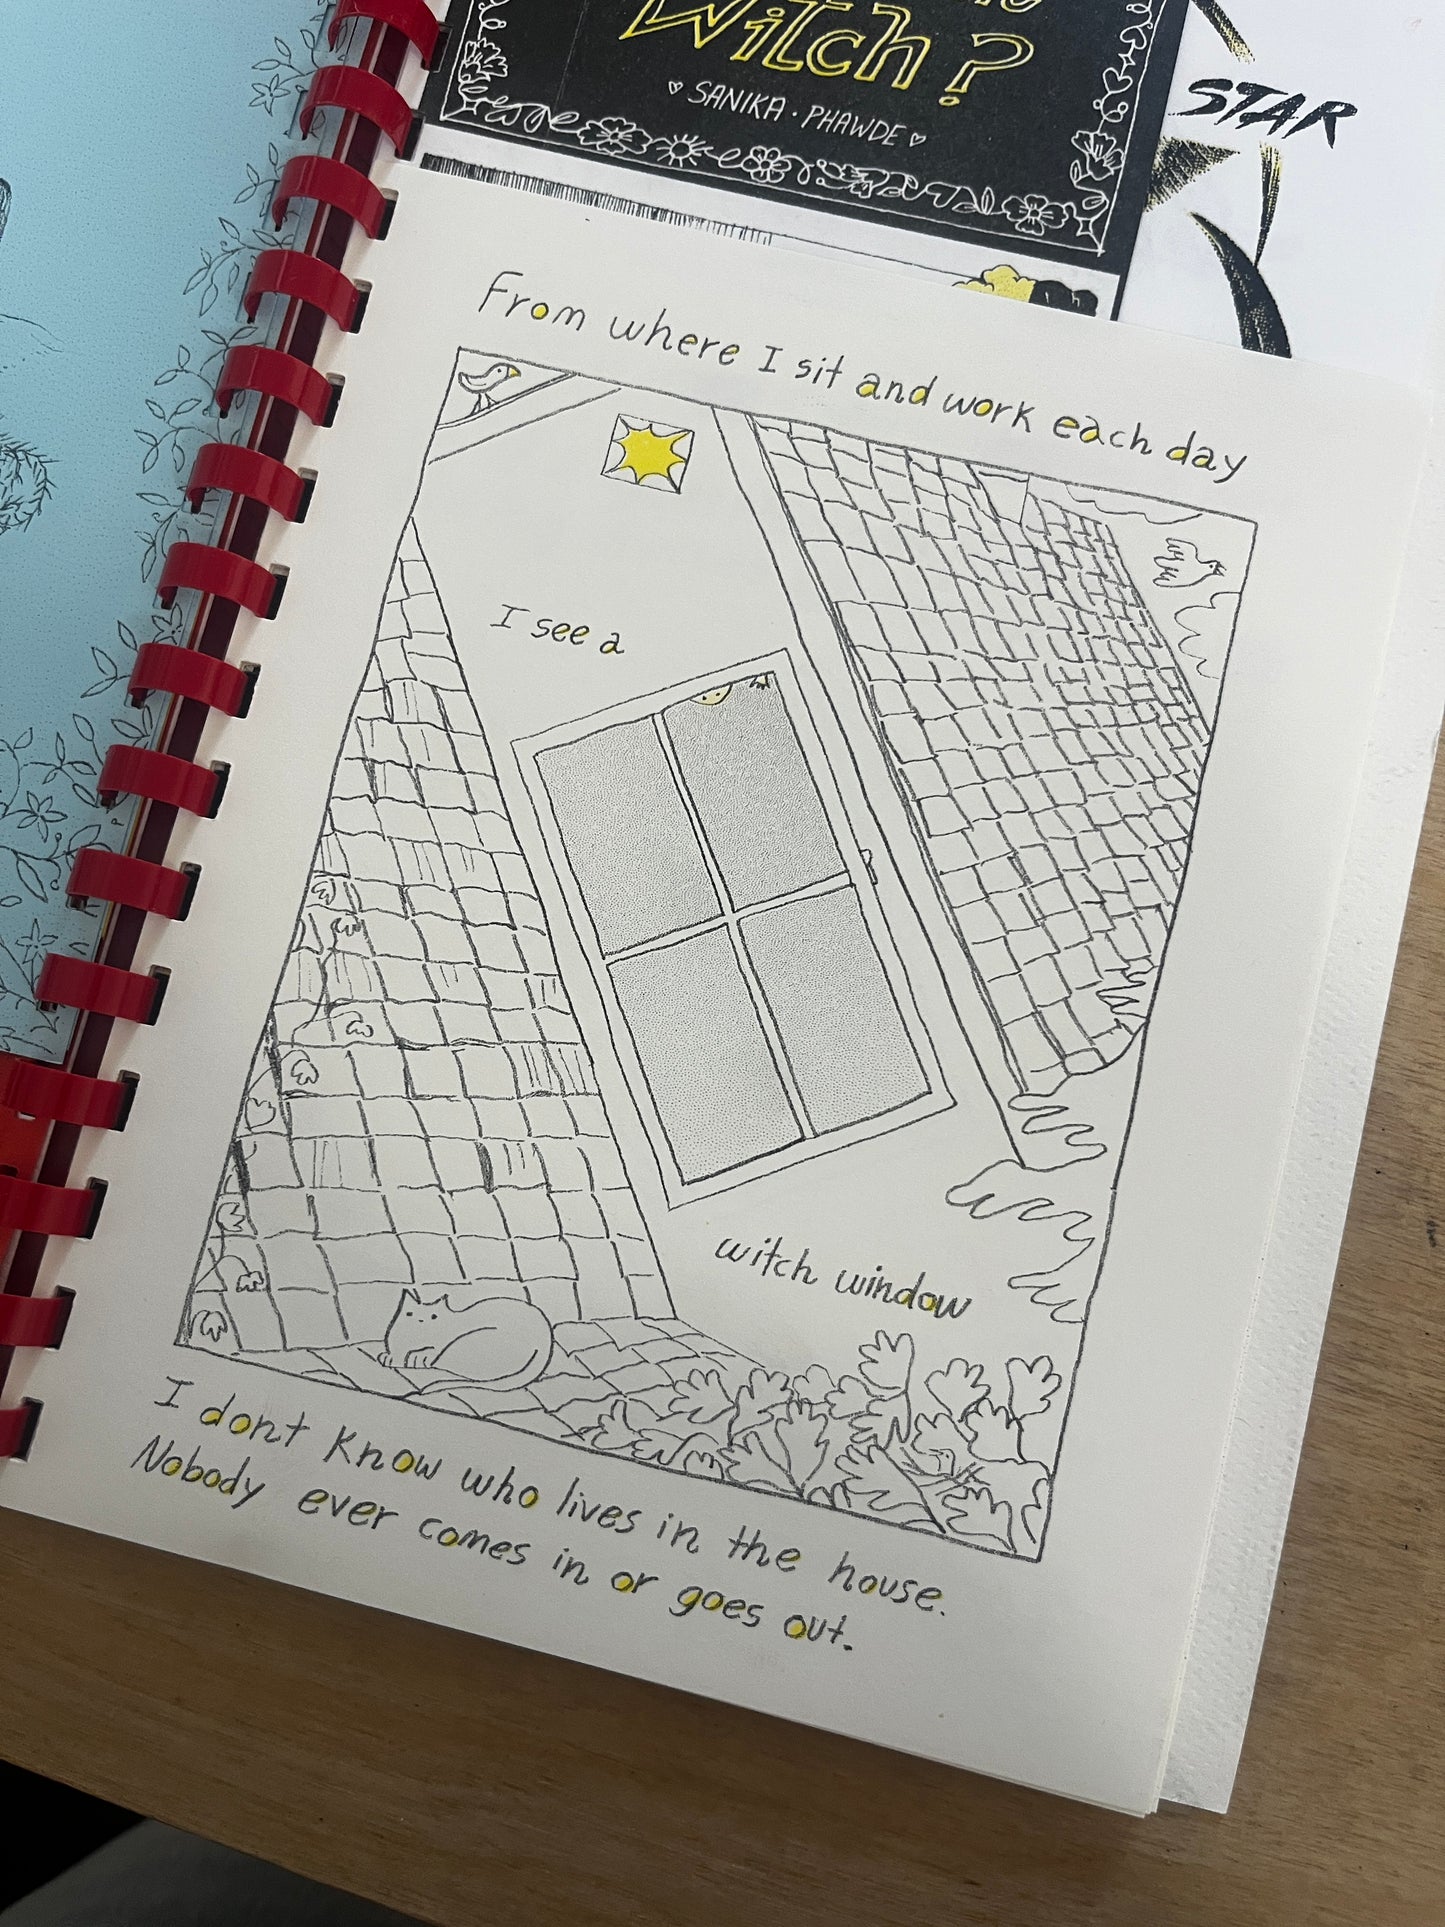 Witch?
♡ SANIKA · PHAWDE ♡
STAR
From where I sit and work each day
I see a
witch window
I dont know who lives in the house.
Nobody ever comes in or goes out.